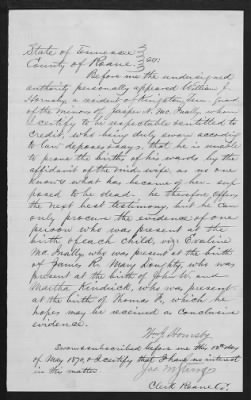 State of Tennessee
County of Roane
Before me the undersigned
authority personally appeared William J.
Hornsby a resident of Kingston Tenn. Guard
of the minors of Jasper N. McInally whom
I certify to be respectable & entitled to
credit, who being duly sworn according
to law deposes & says, that he is unable
to prove the birth of his wards by the
affidavit of the mid wife, as no one
knows what has become of her
posed to be dead. he therefore offers
the next best testimony, but he can
only procure the evidence of one
person who was present at the
birth of each child, viz: Evaline
McInally who was present at the birth
of James R. Mary who was
present at the birth of John W. and
Martha Kendrick, who was present
at the birth of Thomas F., which he
hopes may be received as conclusive
evidence.
W J Hornsby
Sworn & subscribed before me this day
of May 1870, & I certify that I have no interest
in the matter
Clerk Roane Co.